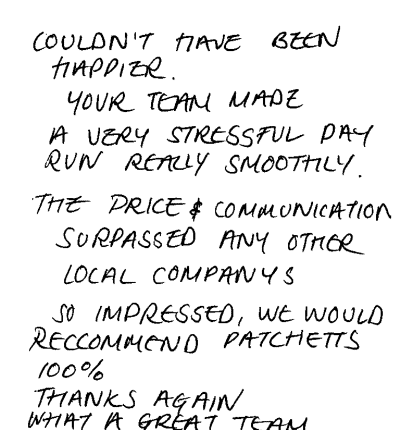 COULDN'T HAVE BEEN
HAPPIER.
YOUR TEAM MADE
A VERY STRESSFUL DAY
RUN REALLY SMOOTHLY.
THE PRICE & COMMUNICATION
SURPASSED ANY OTHER
LOCAL COMPANYS
SO IMPRESSED, WE WOULD
RECCOMMEND PATCHETTS
100%
THANKS AGAIN
WHAT A GREAT TEAM